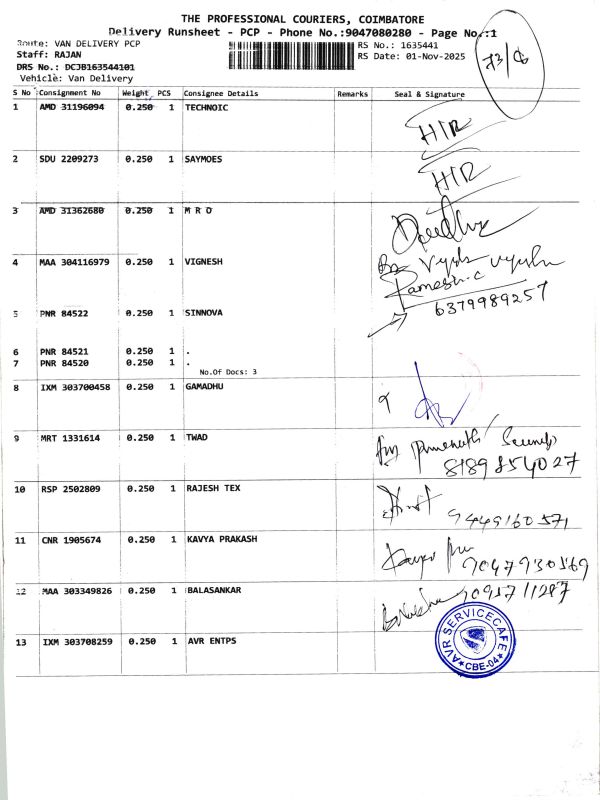 THE PROFESSIONAL COURIERS, COIMBATORE
Delivery Runsheet - PCP - Phone No.:9047080280 - Page No.:1
Route: VAN DELIVERY PCP
Staff: RAJAN
DRS No.: DCJB163544101
Vehicle: Van Delivery
RS No.: 1635441
RS Date: 01-Nov-2025
73/
S No Consignment No Weight PCS Consignee Details Remarks Seal & Signature
1 AMD 31196094 0.250 1 TECHNOIC HIR
2 SDU 2209273 0.250 1 SAYMOES HIR
3 AMD 31362680 0.250 1 M R O
4 MAA 304116979 0.250 1 VIGNESH
Ramesh.c
6379989257
5 PNR 84522 0.250 1 SINNOVA
6 PNR 84521 0.250 1 .
7 PNR 84520 0.250 1 .
No.Of Docs: 3
8 IXM 303700458 0.250 1 GAMADHU
9 MRT 1331614 0.250 1 TWAD
8189854027
10 RSP 2502809 0.250 1 RAJESH TEX
9449160571
11 CNR 1905674 0.250 1 KAVYA PRAKASH
9047930569
12 MAA 303349826 0.250 1 BALASANKAR
9095711287
13 IXM 303708259 0.250 1 AVR ENTPS
AVR SERVICECAFE
CBE-04